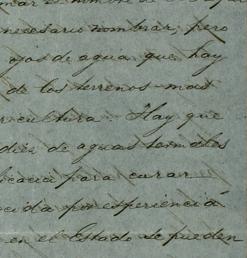 necesario nombrar, pero
ojos de agua que hay
de los terrenos mas
Hay que
de aguas termales
para curar
cida por esperiencia
en el Estado se pueden